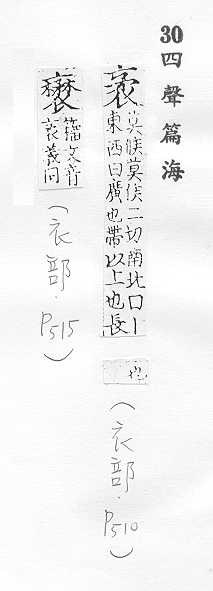 30四聲篇海
袤莫候莫侯二切南北曰丨
東西曰廣也帶以上也長
也
(衣部.P510)
籀文音
袤義同
(衣部.P515)